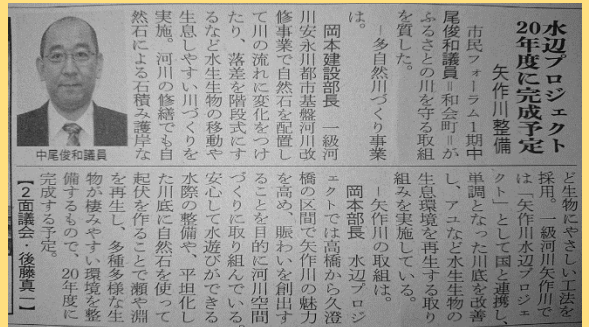 水辺プロジェクト
20年度に完成予定
矢作川整備
市民フォーラム1期中
尾俊和議員=和会町=が
ふるさとの川を守る取組
を質した。
―多自然川づくり事業
は。
岡本建設部長 一級河
川安永川都市基盤河川改
修事業で自然石を配置し
て川の流れに変化をつけ
たり、落差を階段式にす
るなど水生生物の移動や
生息しやすい川づくりを
実施。河川の修繕でも自
然石による石積み護岸な
中尾俊和議員
ど生物にやさしい工法を
採用。一級河川矢作川で
は「矢作川水辺プロジェ
クト」として国と連携し、
単調となった川底を改善
し、アユなど水生生物の
生息環境を再生する取り
組みを実施している。
―矢作川の取組は。
岡本部長 水辺プロジ
ェクトでは高橋から久澄
橋の区間で矢作川の魅力
を高め、賑わいを創出す
ることを目的に河川空間
づくりに取り組んでいる。
安心して水遊びができる
水際の整備や、平坦化し
た川底に自然石を使って
起伏を作ることで瀬や淵
を再生し、多種多様な生
物が棲みやすい環境を整
備するもので、20年度に
完成する予定。
【2面議会・後藤真一】